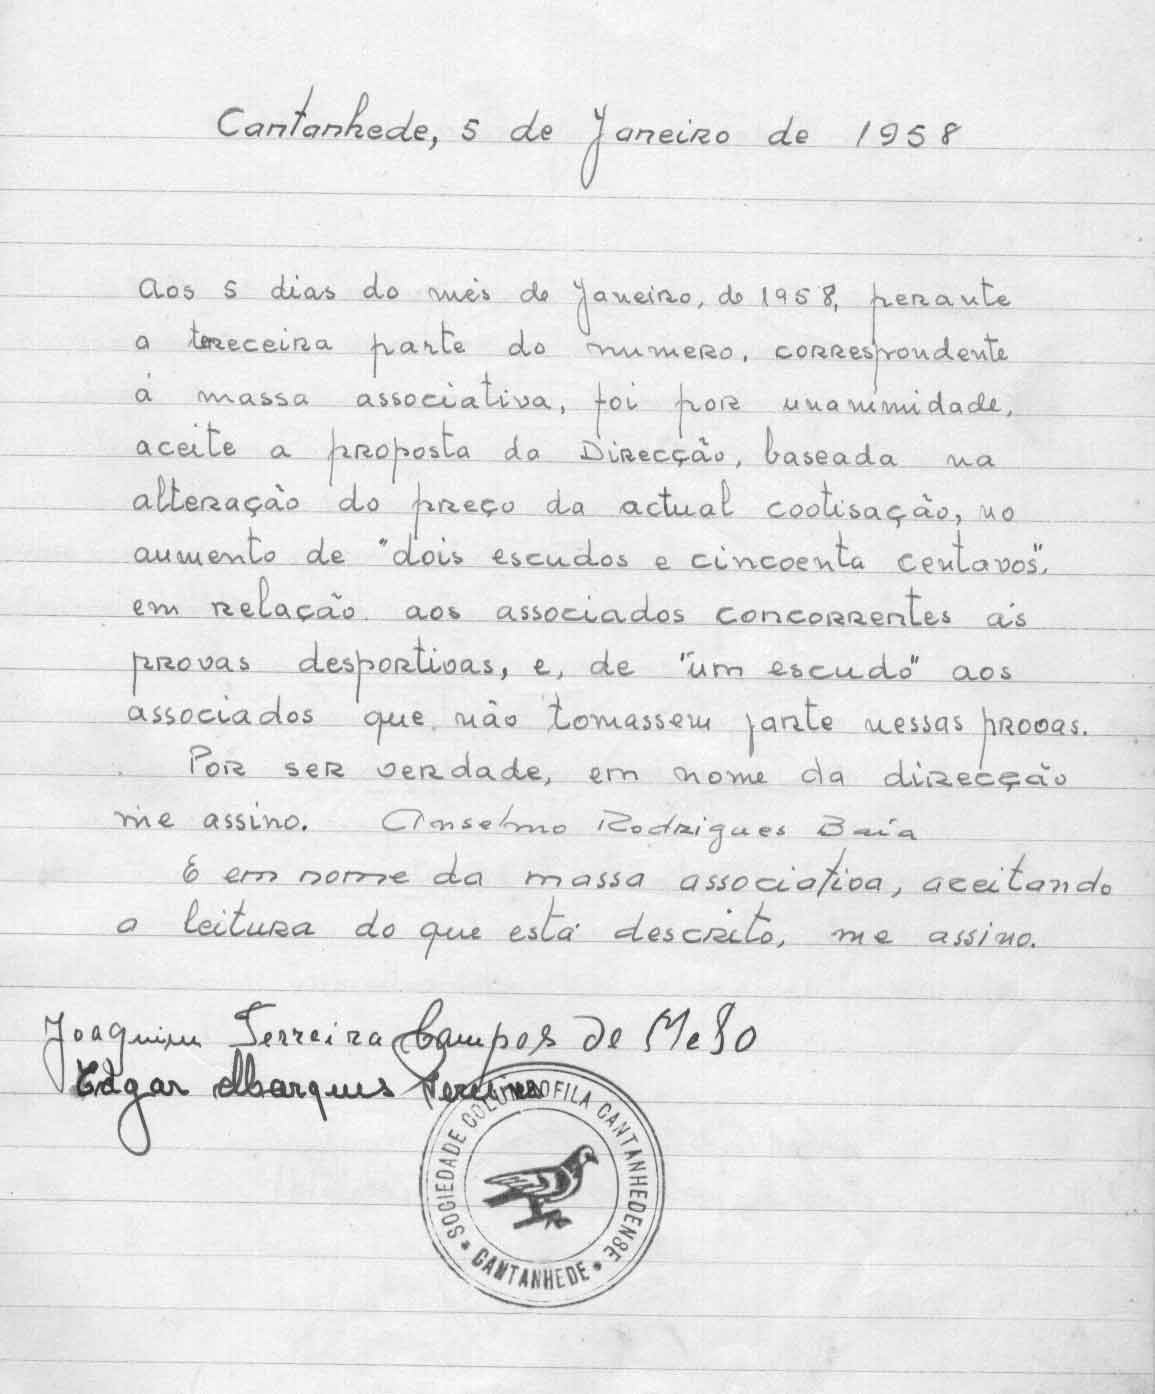 Cantanhede, 5 de Janeiro de 1958
Aos 5 dias do mês de Janeiro, de 1958, perante
a terceceira parte do numero, correspondente
á massa associativa, foi por unanimidade,
aceite a proposta da Direcção, baseada na
alteração do preço da actual cootisação, no
aumento de "dois escudos e cincoenta centavos",
em relação aos associados concorrentes ás
provas desportivas, e, de "um escudo" aos
associados que não tomassem parte nessas provas.
Por ser verdade, em nome da direcção
me assino. Anselmo Rodrigues Baía
E em nome da massa associativa, aceitando
a leitura do que está descrito, me assino.
Joaquim Ferreira Campos de Melo
Edgar Marques
SOCIEDADE COLUMBOFILA CANTANHEDENSE
CANTANHEDE